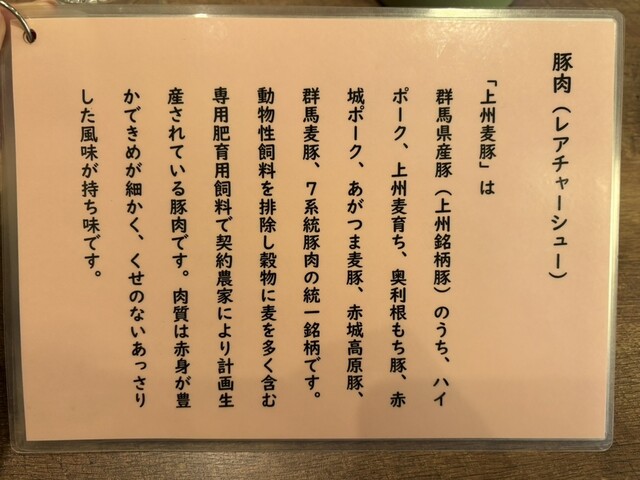 豚肉（レアチャーシュー）
「上州麦豚」は
群馬県産豚（上州銘柄豚）のうち、ハイ
ポーク、上州麦育ち、奥利根もち豚、赤
城ポーク、あがつま麦豚、赤城高原豚、
群馬麦豚、７系統豚肉の統一銘柄です。
動物性飼料を排除し穀物に麦を多く含む
専用肥育用飼料で契約農家により計画生
産されている豚肉です。肉質は赤身が豊
かできめが細かく、くせのないあっさり
した風味が持ち味です。